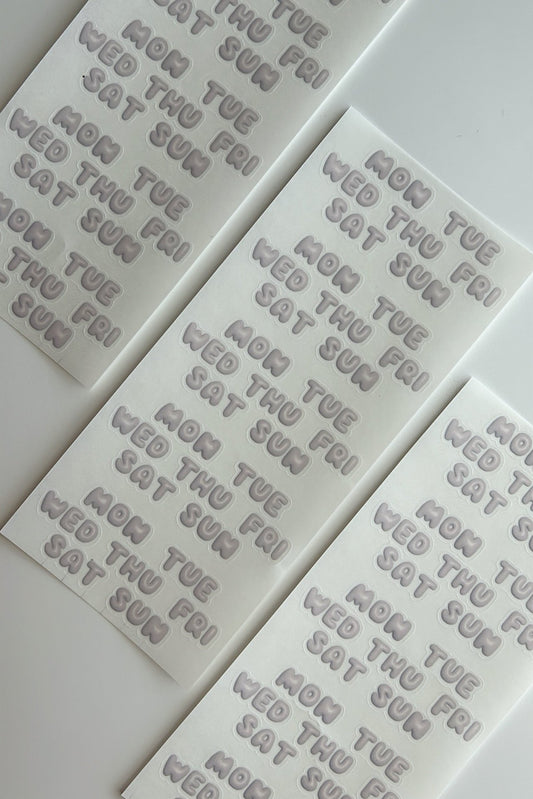 TUE
THU FRI
SAT SUN
MON TUE
WED THU FRI
SAT SUN
MON TUE
WED THU FRI
SAT SUN
MON TUE
THU FRI
SUN
MON TUE
WED THU FRI
SAT SUN
MON TUE
WED THU FRI
SAT SUN
MON TUE
WED THU FRI
SAT SUN
MON TUE
WED THU FRI
SAT SUN
MON TUE
WED THU FRI
SAT SUN
WED
SAT
MON
WED THU
SAT SUN
MON TUE
WED THU FRI
SAT SUN
MON TUE
WED THU
SAT SUN
MON
WED